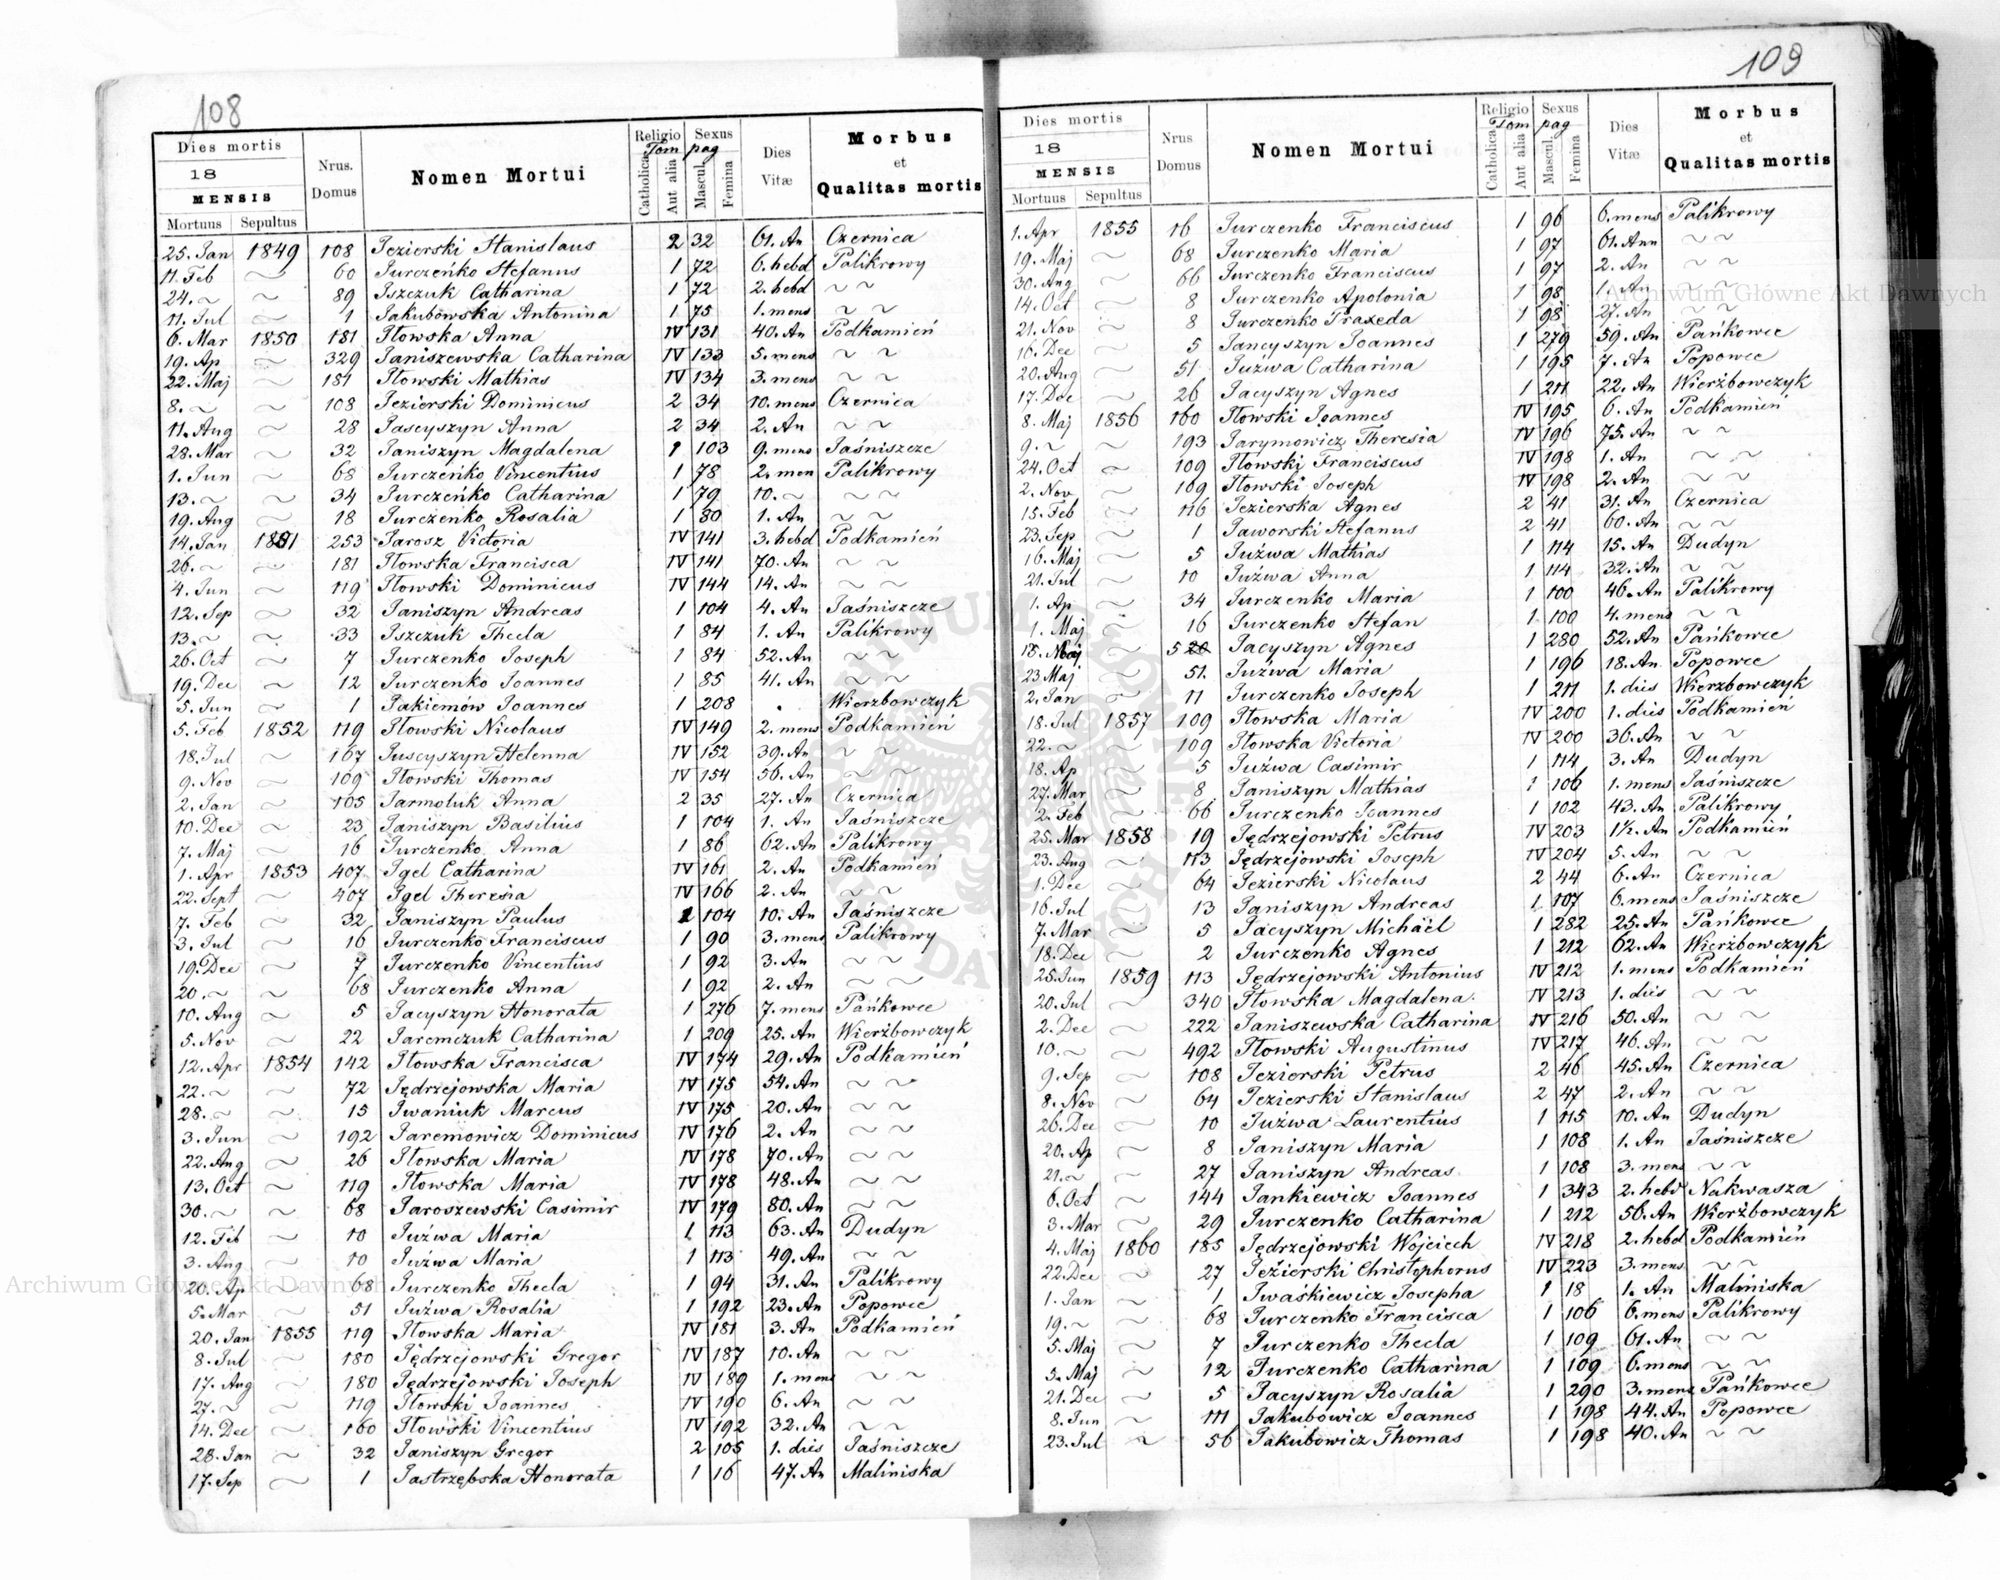 108
Dies mortis
18
MENSIS
Mortuus Sepultus
Nrus. Domus
Nomen Mortui
Religio Tom
Catholica Aut alia
Sexus pag
Mascul. Femina
Dies Vitæ
Morbus et Qualitas mortis
25. Jan 1849 108 Jezierski Stanislaus 2 32 61. An Czernica
11. Feb ~ 60 Jurczeńko Stefanus 1 72 6. hebd Palikrowy
24. ~ ~ 89 Jszczuk Catharina 1 72 2. hebd ~ ~
11. Jul ~ 1 Jakubowska Antonina 1 75 1. mens ~ ~
6. Mar 1850 181 Iłowska Anna IV 131 40. An Podkamień
19. Ap ~ 329 Janiszewska Catharina IV 133 5. mens ~ ~
22. Maj ~ 181 Iłowski Mathias IV 134 3. mens ~ ~
8. ~ ~ 108 Jezierski Dominicus 2 34 10. mens Czernica
11. Aug ~ 28 Jascyszyn Anna 2 34 2. An ~ ~
28. Mar ~ 32 Janiszyn Magdalena 1 103 9. mens Jaśniszcze
1. Jun ~ 68 Jurczeńko Vincentius 1 78 2. men Palikrowy
13. ~ ~ 34 Jurczeńko Catharina 1 79 10. ~ ~ ~
19. Aug ~ 18 Jurczenko Rosalia 1 80 1. An ~ ~
14. Jan 1851 253 Jarosz Victoria IV 141 3. hebd Podkamień
26. ~ ~ 181 Iłowska Francisca IV 141 70. An ~ ~
4. Jun ~ 119 Iłowski Dominicus IV 144 14. An ~ ~
12. Sep ~ 32 Janiszyn Andreas 1 104 4. An Jaśniszcze
13. ~ ~ 33 Jszczuk Thecla 1 84 1. An Palikrowy
26. Oct ~ 7 Jurczenko Joseph 1 84 52. An ~ ~
19. Dec ~ 12 Jurczenko Joannes 1 85 41. An ~ ~
5. Jun ~ 1 Jakiemów Joannes 1 208 . Wierzbowczyk
5. Feb 1852 119 Iłowski Nicolaus IV 149 2. mens Podkamień
18. Jul ~ 167 Juscyszyn Helenna IV 152 39. An ~ ~
9. Nov ~ 109 Iłowski Thomas IV 154 56. An ~ ~
2. Jan ~ 105 Jarmoluk Anna 2 35 27. An Czernica
10. Dec ~ 23 Janiszyn Basilius 1 104 1. An Jaśniszcze
7. Maj ~ 16 Jurczenko Anna 1 86 62. An Palikrowy
1. Apr 1853 407 Igel Catharina IV 161 2. An Podkamień
22. Sept ~ 407 Igel Theresia IV 166 2. An ~ ~
7. Feb ~ 32 Janiszyn Paulus 1 104 10. An Jaśniszcze
3. Jul ~ 16 Jurczenko Franciscus 1 90 3. mens Palikrowy
19. Dec ~ 7 Jurczenko Vincentius 1 92 3. An ~ ~
20. ~ ~ 68 Jurczenko Anna 1 92 2. An ~ ~
10. Aug ~ 5 Jacyszyn Honorata 1 276 7. mens Pańkowce
5. Nov ~ 22 Jaremczuk Catharina 1 209 25. An Wierżbowczyk
12. Apr 1854 142 Iłowska Francisca IV 174 29. An Podkamień
22. ~ ~ 72 Jędrzejowska Maria IV 175 54. An ~ ~
28. ~ ~ 15 Iwaniuk Marcus IV 175 20. An ~ ~
3. Jun ~ 192 Jaremowicz Dominicus IV 176 2. An ~ ~
22. Aug ~ 26 Iłowska Maria IV 178 70. An ~ ~
13. Oct ~ 119 Iłowska Maria IV 178 48. An ~ ~
30. ~ ~ 68 Jaroszewski Casimir IV 179 80. An ~ ~
12. Feb ~ 10 Juźwa Maria 1 113 63. An Dudyn
3. Aug ~ 10 Juźwa Maria 1 113 49. An ~ ~
20. Ap ~ 68 Jurczenko Thecla 1 94 31. An Palikrowy
5. Mar ~ 51 Juźwa Rosalia 1 192 23. An Popowce
20. Jan 1855 119 Iłowska Maria IV 181 3. An Podkamień
8. Jul ~ 180 Jędrzejowski Gregor IV 187 10. An ~ ~
17. Aug ~ 180 Jędrzejowski Joseph IV 189 1. mens ~ ~
27. ~ ~ 119 Iłowski Joannes IV 190 6. An ~ ~
14. Dec ~ 160 Iłowski Vincentius IV 192 32. An ~ ~
28. Jan ~ 32 Janiszyn Gregor 2 105 1. dies Jaśniszcze
17. Sep ~ 1 Jastrzębska Honorata 1 16 47. An Maliniska
109
Dies mortis
18
MENSIS
Mortuus Sepultus
Nrus Domus
Nomen Mortui
Religio Tom
Catholica Aut alia
Sexus pag
Mascul. Femina
Dies Vitæ
Morbus et Qualitas mortis
1. Apr 1855 16 Jurczenko Franciscus 1 96 6. mens Palikrowy
19. Maj ~ 68 Jurczenko Maria 1 97 61. Ann ~ ~
30. Aug ~ 66 Jurczenko Franciscus 1 97 2. An ~ ~
14. Oct ~ 8 Jurczenko Apolonia 1 98 1. An ~ ~
21. Nov ~ 8 Jurczenko Praxeda 1 98 27. An ~ ~
16. Dec ~ 5 Jancyszyn Joannes 1 279 59. An Pańkowce
20. Aug ~ 51 Juźwa Catharina 1 195 7. An Popowce
17. Dec ~ 26 Jacyszyn Agnes 1 211 22. An Wierżbowczyk
8. Maj 1856 160 Iłowski Joannes IV 195 6. An Podkamień
9. ~ ~ 193 Jarymowicz Theresia IV 196 75. An ~ ~
24. Oct ~ 109 Iłowski Franciscus IV 198 1. An ~ ~
2. Nov ~ 109 Iłowski Joseph IV 198 2. An ~ ~
15. Feb ~ 116 Jezierska Agnes 2 41 31. An Czernica
23. Sep ~ 1 Jaworski Stefanus 2 41 60. An ~ ~
16. Maj ~ 5 Juźwa Mathias 1 114 15. An Dudyn
21. Jul ~ 10 Juźwa Anna 1 114 32. An ~ ~
1. Ap ~ 34 Jurczenko Maria 1 100 46. An Palikrowy
1. Maj ~ 16 Jurczenko Stefan 1 100 4. mens ~ ~
18. Maj ~ 5 Jacyszyn Agnes 1 280 52. An Pańkowce
23 Maj ~ 51. Juźwa Maria 1 196 18. An Popowce
2. Jan ~ 11 Jurczenko Joseph 1 211 1. dies Wierzbowczyk
18. Jul 1857 109 Iłowska Maria IV 200 1. dies Podkamień
22. ~ ~ 109 Iłowska Victoria IV 200 36. An ~ ~
18. Ap ~ 5 Juźwa Casimir 1 114 3. An Dudyn
27. Mar ~ 8 Janiszyn Mathias 1 106 1. mens Jaśniszcze
2. Feb ~ 66 Jurczenko Joannes 1 102 43. An Palikrowy
25. Mar 1858 19 Jędrzejowski Petrus IV 203 1½. An Podkamień
23. Aug ~ 113 Jędrzejowski Joseph IV 204 5. An ~ ~
1. Dec ~ 64 Jezierski Nicolaus 2 44 6. An Czernica
16. Jul ~ 13 Janiszyn Andreas 1 107 6. mens Jaśniszcze
7. Mar ~ 5 Jacyszyn Michäel 1 282 25. An Pańkowce
18. Dec ~ 2 Jurczenko Agnes 1 212 62. An Wierżbowczyk
25. Jun 1859 113 Jędrzejowski Antonius IV 212 1. mens Podkamień
20. Jul ~ 340 Iłowska Magdalena IV 213 1. dies ~ ~
2. Dec ~ 222 Janiszewska Catharina IV 216 50. An ~ ~
10. ~ ~ 492 Iłowski Augustinus IV 217 46. An ~ ~
9. Sep ~ 108 Jezierski Petrus 2 46 45. An Czernica
8. Nov ~ 64 Jezierski Stanislaus 2 47 2. An ~ ~
26. Dec ~ 10 Juźwa Laurentius 1 115 10. An Dudyn
20. Ap ~ 8 Janiszyn Maria 1 108 1. An Jaśniszcze
21. ~ ~ 27 Janiszyn Andreas 1 108 3. mens ~ ~
6. Oct ~ 144 Jankiewicz Joannes 1 343 2. hebd Nakwasza
3. Mar ~ 29 Jurczenko Catharina 1 212 56. An Wierżbowczyk
4. Maj 1860 185 Jędrzejowski Wojciech IV 218 2. hebd Podkamień
22. Dec ~ 27 Jezierski Christophorus IV 223 3. mens ~ ~
1. Jan ~ 1 Iwaśkiewicz Josepha 1 18 1. An Maliniska
19. ~ ~ 68 Jurczenko Francisca 1 106 6. mens Palikrowy
5. Maj ~ 7 Jurczenko Thecla 1 109 61. An ~ ~
5. Maj ~ 12 Jurczenko Catharina 1 109 6. mens ~ ~
21. Dec ~ 5 Jacyszyn Rosalia 1 290 3. mens Pańkowce
8. Jun ~ 111 Jakubowicz Joannes 1 198 44. An Popowce
23. Jul ~ 56 Jakubowicz Thomas 1 198 40. An ~ ~
Archiwum Główne Akt Dawnych
Archiwum Główne Akt Dawnych